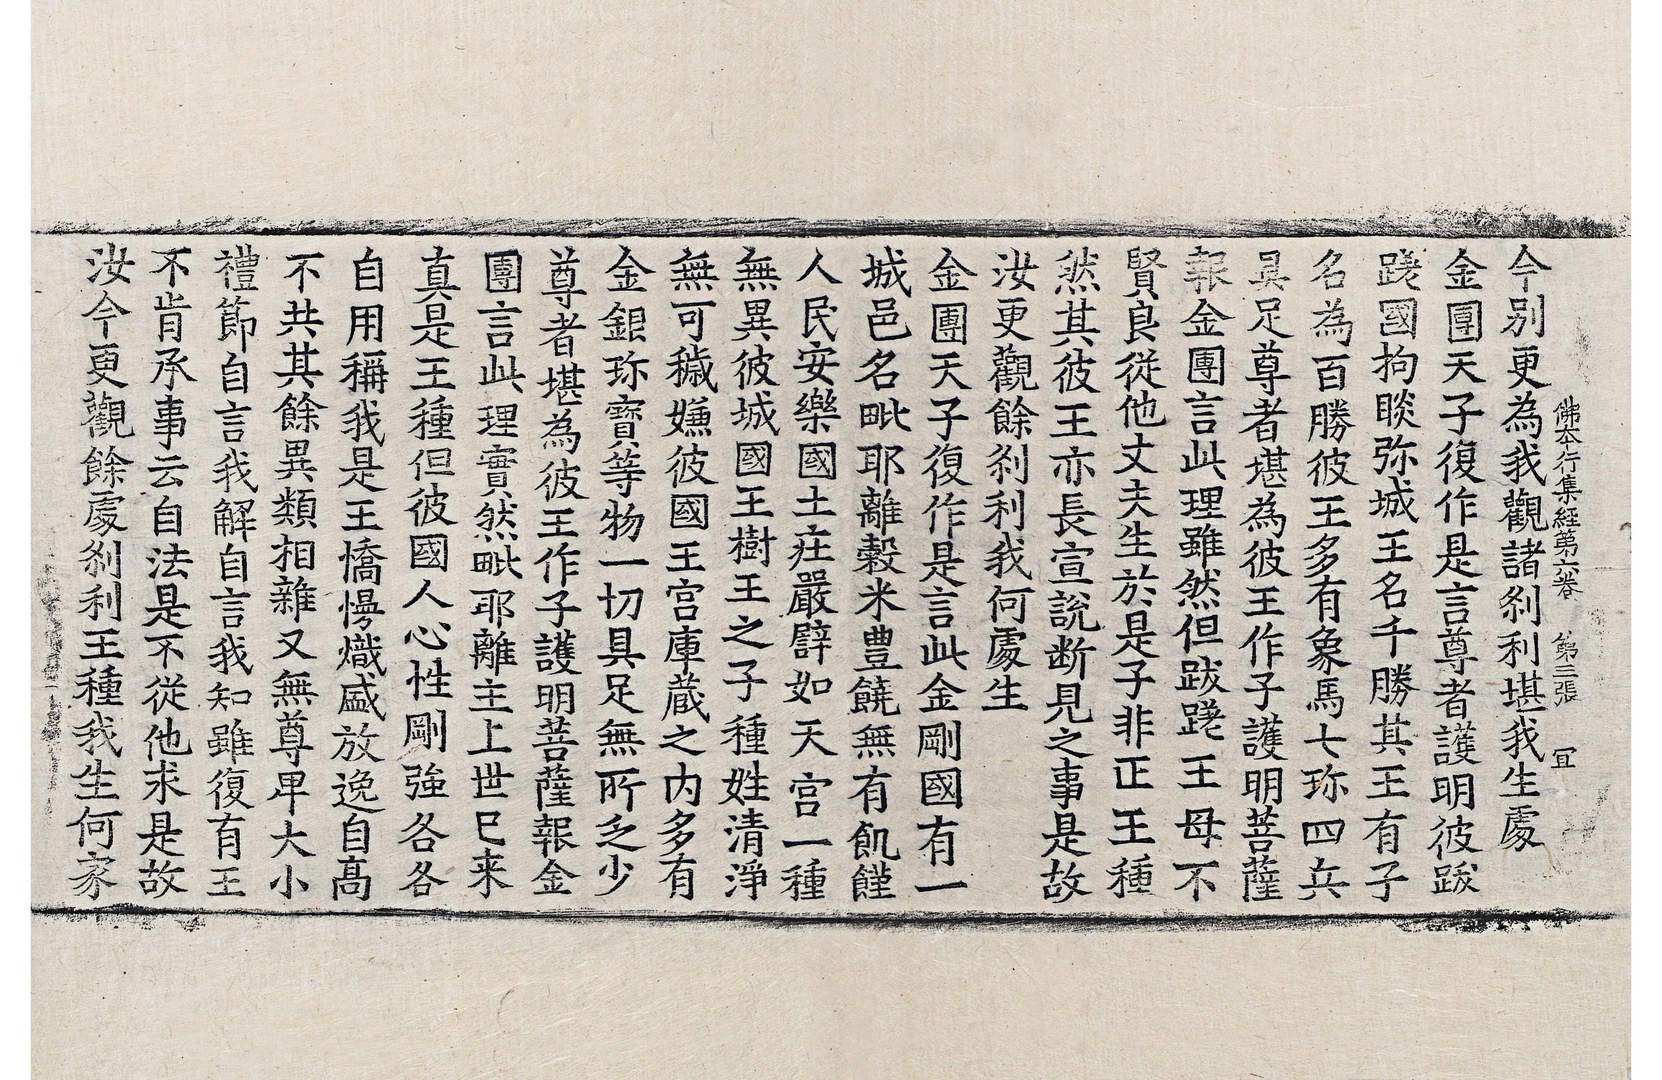 佛本行集經第六卷　第三張　冝
今別更為我觀諸剎利堪我生處
金團天子復作是言尊者護明彼跋
蹉國拘睒弥城王名千勝其王有子
名為百勝彼王多有象馬七珎四兵
具足尊者堪為彼王作子護明菩薩
報金團言此理雖然但跋蹉王母不
賢良從他丈夫生於是子非正王種
然其彼王亦長宣說断見之事是故
汝更觀餘剎利我何處生
金團天子復作是言此金剛國有一
城邑名毗耶離穀米豊饒無有飢饉
人民安樂國土庄嚴譬如天宮一種
無異彼城國王樹王之子種姓清淨
無可穢嫌彼國王宮庫蔵之内多有
金銀珎寶等物一切具足無所乏少
尊者堪為彼王作子護明菩薩報金
團言此理實然毗耶離主上世已来
真是王種但彼國人心性剛強各各
自用稱我是王憍慢熾盛放逸自高
不共其餘異類相雜又無尊卑大小
禮節自言我解自言我知雖復有王
不肯承事云自法是不從他求是故
汝今更觀餘處剎利王種我生何家